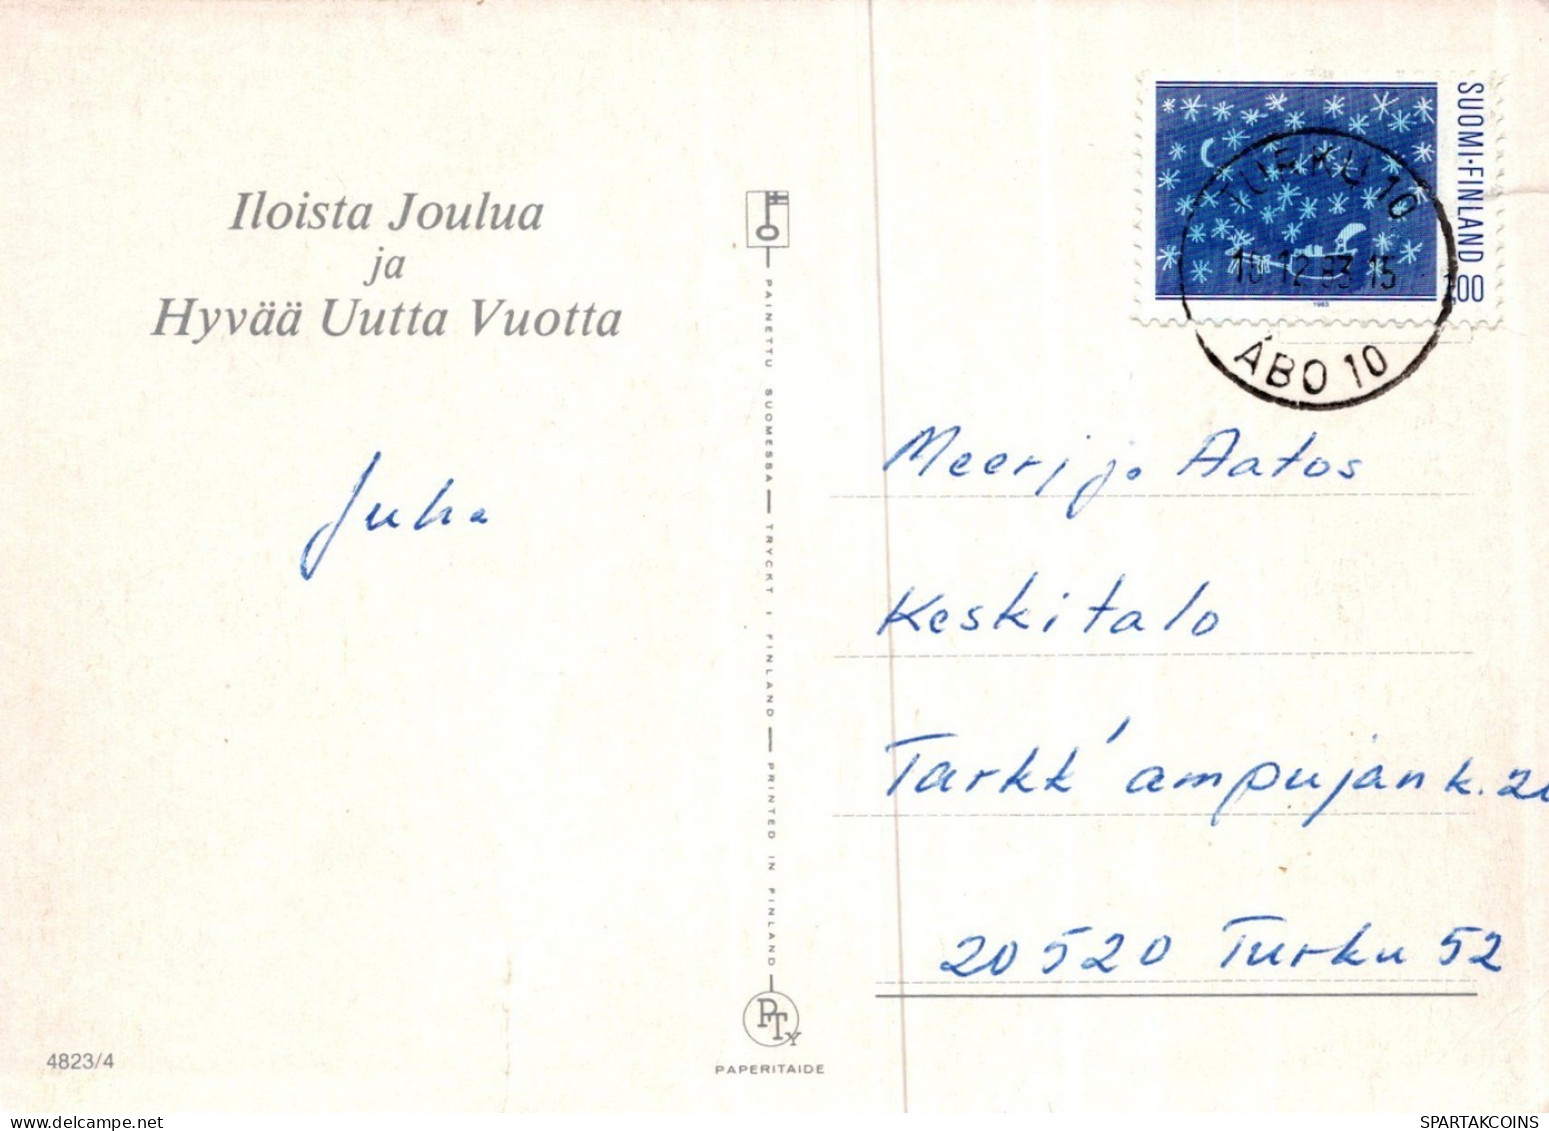 Iloista Joulua
ja
Hyvää Uutta Vuotta
Juha
4823/4
PAINETTU SUOMESSA — TRYCKT I FINLAND — PRINTED IN FINLAND
PTY
PAPERITAIDE
SUOMI·FINLAND
1,00
1983
TURKU 10
12.83.15
ÅBO 10
Meeri ja Aatos
Keskitalo
Tarkk'ampujank.
20520 Turku 52
SPARTAKCOINS